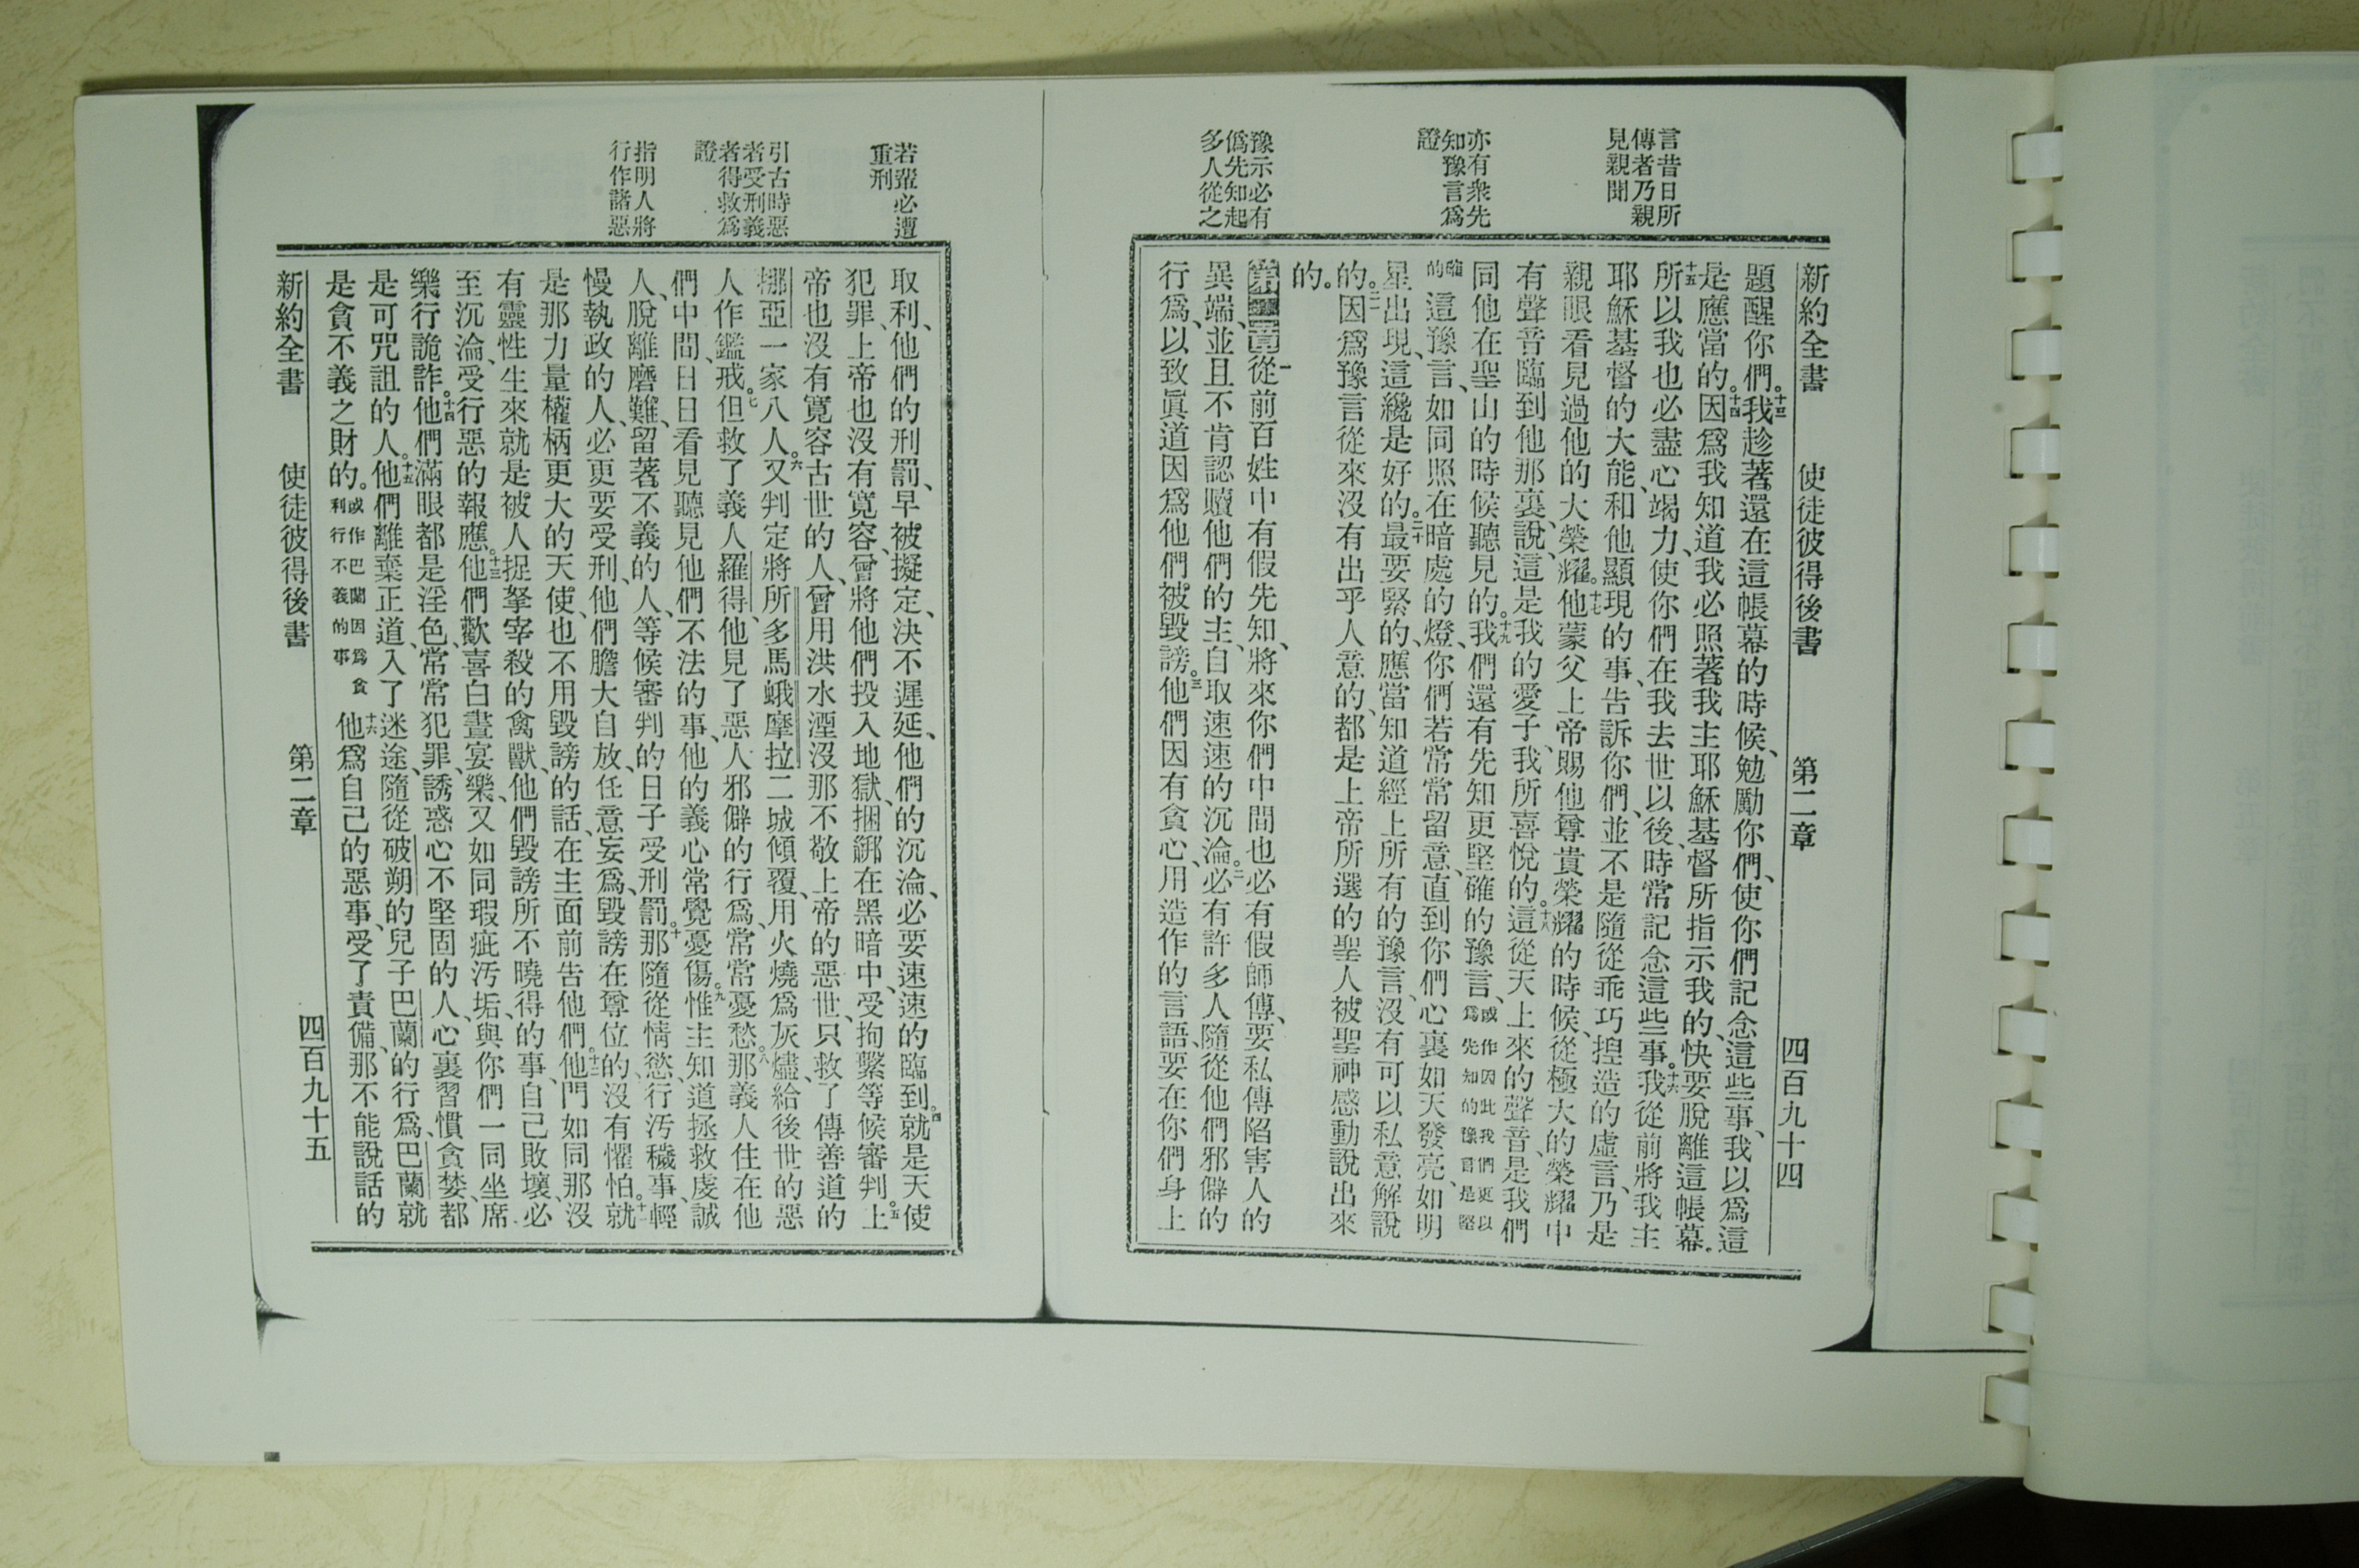 言昔日所
傳者乃親
見親聞
亦有衆先
知豫言爲
證
豫示必有
僞先知起
多人從之
新約全書 使徒彼得後書 第二章 四百九十四
題醒你們。十三我趁著還在這帳幕的時候、勉勵你們、使你們記念這些事、我以爲這
是應當的。十四因爲我知道我必照著我主耶穌基督所指示我的、快要脫離這帳幕。
十五所以我也必盡心竭力、使你們在我去世以後、時常記念這些事。十六我從前將我主
耶穌基督的大能、和他顯現的事、告訴你們、並不是隨從乖巧揑造的虛言、乃是
親眼看見過他的大榮耀。十七他蒙父上帝賜他尊貴榮耀的時候、從極大的榮耀中
有聲音臨到他那裏、說、這是我的愛子、我所喜悅的。十八這從天上來的聲音、是我們
同他在聖山的時候聽見的。十九我們還有先知更堅確的豫言、或作因此我們更以爲先知的豫言是隺
的確這豫言、如同照在暗處的燈、你們若常常留意、直到你們心裏如天發亮、如明
星出現、這纔是好的。二十最要緊的、應當知道經上所有的豫言、沒有可以私意解說
的。二一因爲豫言從來沒有出乎人意的、都是上帝所選的聖人被聖神感動說出來
的。
第二章一從前百姓中有假先知、將來你們中間也必有假師傅、要私傳陷害人的
異端、並且不肯認贖他們的主、自取速速的沉淪。二必有許多人隨從他們邪僻的
行爲、以致眞道因爲他們被毀謗。三他們因有貪心、用造作的言語、要在你們身上
若蹤必遭
重刑
引古時惡
者受刑義
者得救爲
證
指明人將
行作諸惡
取利、他們的刑罰、早被擬定、決不遲延、他們的沉淪、必要速速的臨到。四就是天使
犯罪、上帝也沒有寬容、曾將他們投入地獄、捆綁在黑暗中、受拘繫等候審判。五上
帝也沒有寬容古世的人、曾用洪水湮沒那不敬上帝的惡世、只救了傳善道的
挪亞一家八人。六又判定將所多馬蛾摩拉二城傾覆、用火燒爲灰燼、給後世的惡
人作鑑戒。七但救了義人羅得、他見了惡人邪僻的行爲、常常憂愁。八那義人住在他
們中間、日日看見聽見他們不法的事、他的義心常覺憂傷。九惟主知道拯救虔誠
人、脫離磨難、留著不義的人、等候審判的日子受刑罰。十那隨從情慾、行汚穢事、輕
慢執政的人、必更要受刑、他們膽大自放、任意妄爲、毀謗在尊位的、沒有懼怕。十一就
是那力量權柄更大的天使、也不用毀謗的話、在主面前告他們。十二他門如同那沒
有靈性生來就是被人捉拏宰殺的禽獸、他們毀謗所不曉得的事、自己敗壞、必
至沉淪、受行惡的報應。十三他們歡喜白晝宴樂、又如同瑕疵汚垢、與你們一同坐席
樂行詭詐。十四他們滿眼都是淫色、常常犯罪、誘惑心不堅固的人、心裏習慣貪婪、都
是可咒詛的人。十五他們離棄正道、入了迷途、隨從破朔的兒子巴蘭的行爲、巴蘭就
是貪不義之財的。或作巴蘭因爲貪利行不義的事十六他爲自己的惡事、受了責備、那不能說話的
新約全書 使徒彼得後書 第二章 四百九十五